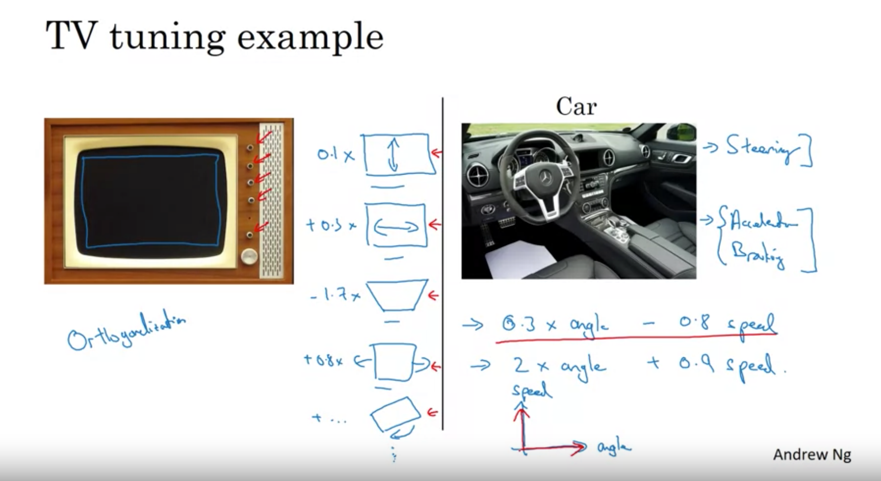 TV tuning example
Car
0.1 x
+ 0.3 x
- 1.7 x
+ 0.8 x
+ ...
Orthogonalization
→ Steering
→ Acceleration
Braking
→ 0.3 x angle - 0.8 speed
→ 2 x angle + 0.9 speed.
speed
angle
Andrew Ng